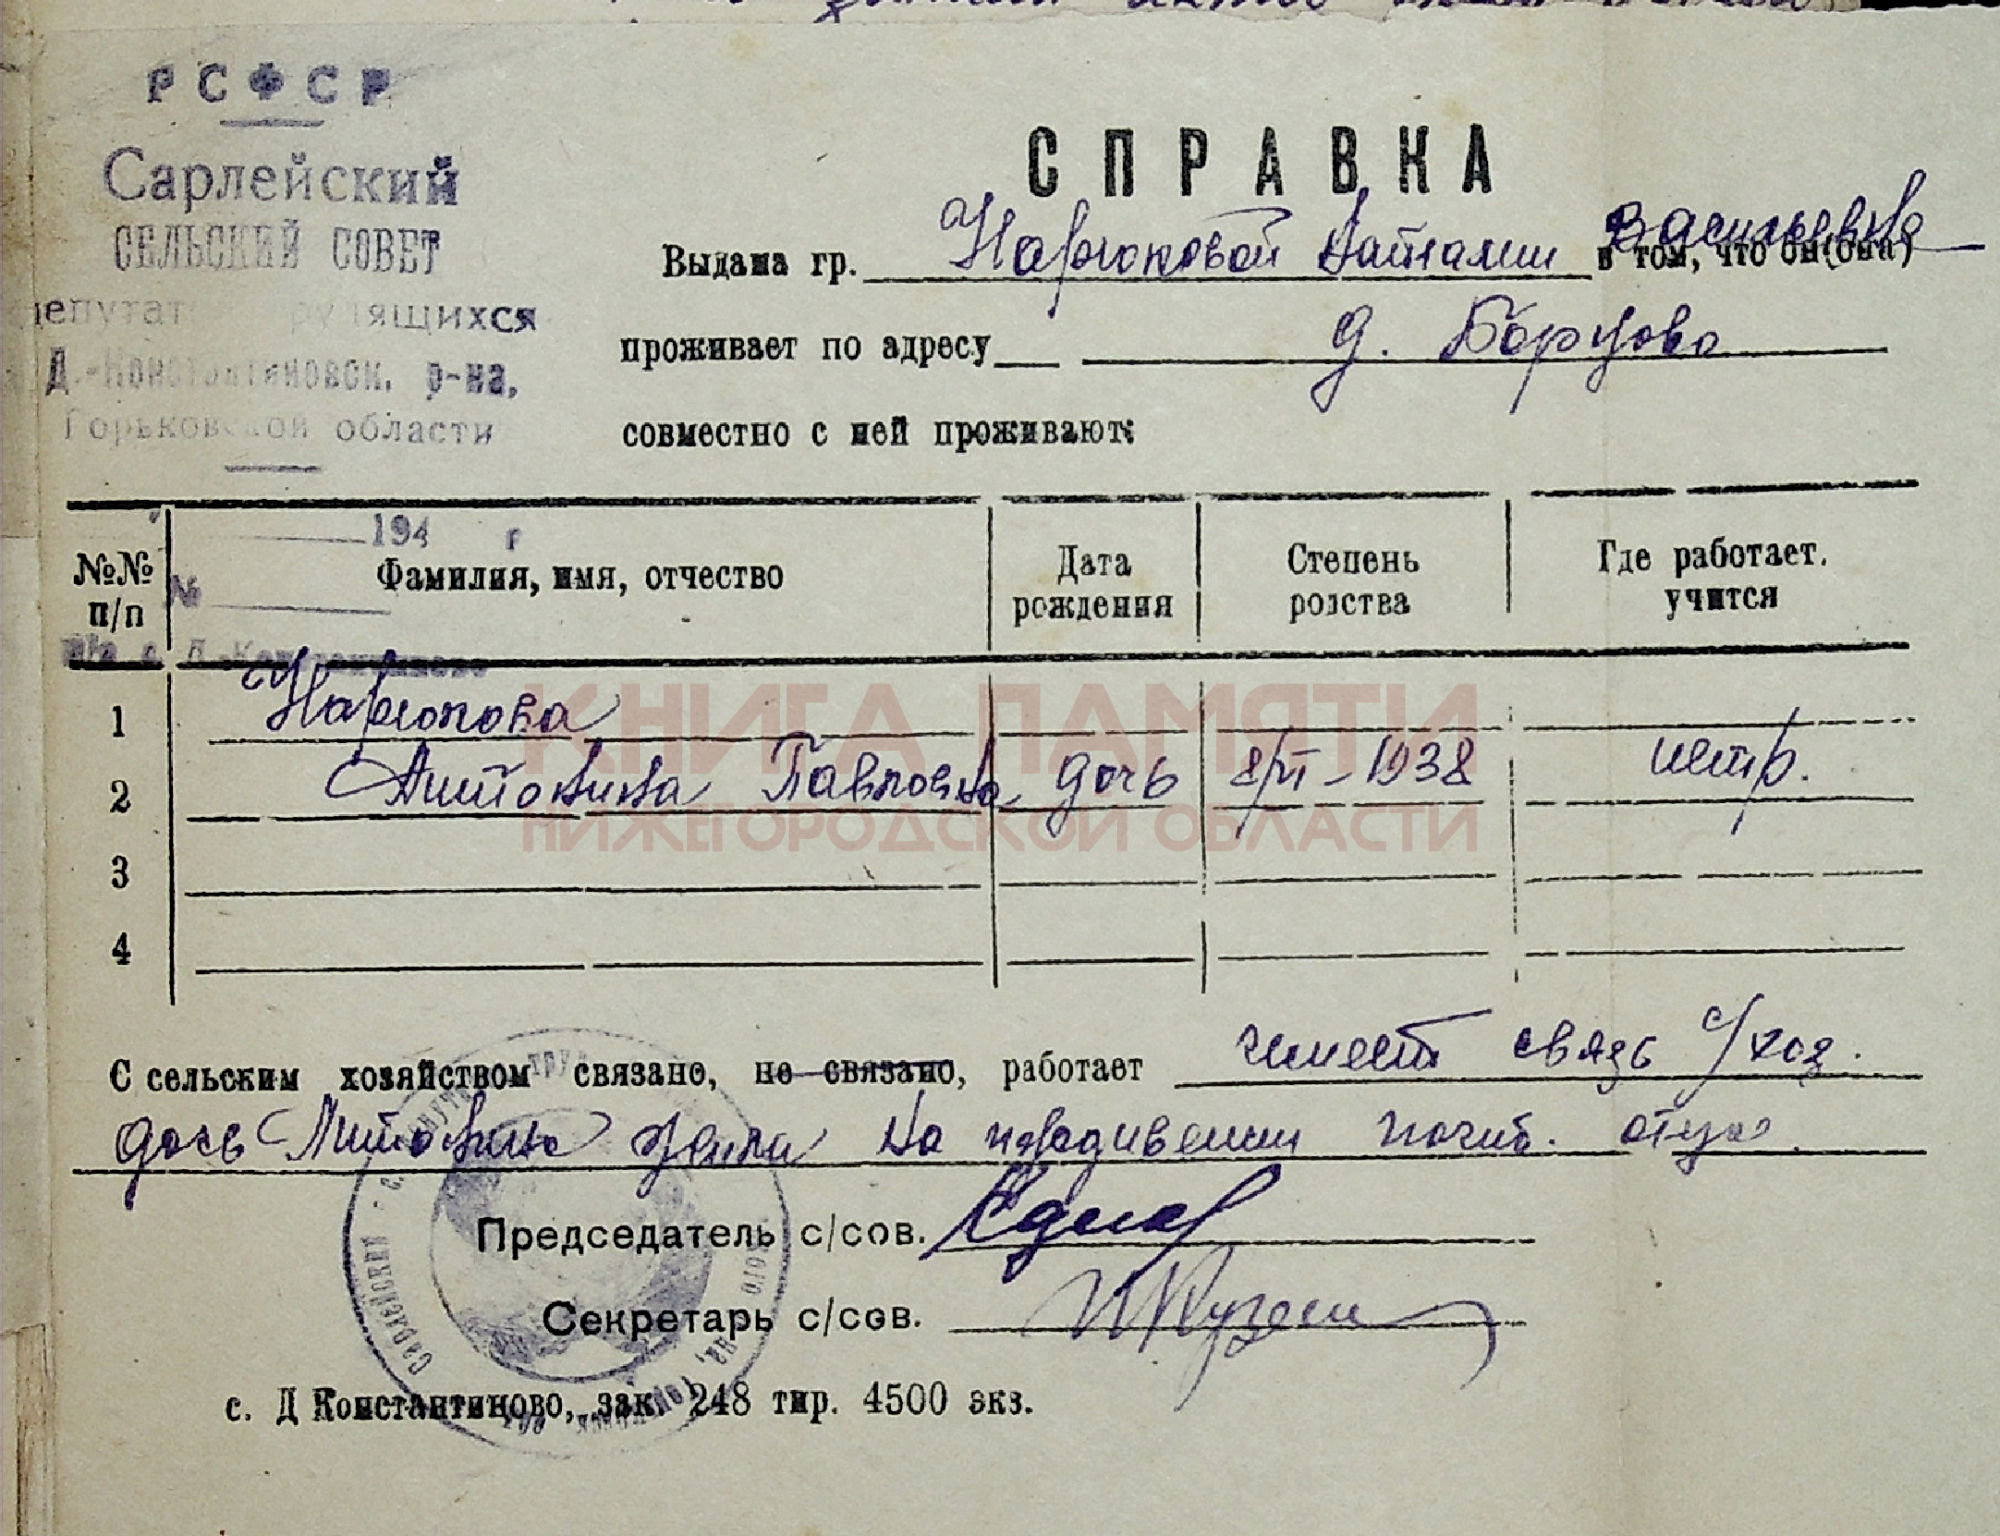 РСФСР
Сарлейский
СЕЛЬСКИЙ СОВЕТ
депутатов трудящихся
Д.-Константиновск. р-на,
Горьковской области
194 г
№
СПРАВКА
Выдана гр. Нарюковой Наталии Васильевне в том, что он(она)
проживает по адресу д. Борцово
совместно с ней проживают:
№№ п/п Фамилия, имя, отчество Дата рождения Степень родства Где работает. учится
1 Нарюкова
2 Антонина Павловна дочь 8/VI-1938
3
4
КНИГА ПАМЯТИ
НИЖЕГОРОДСКОЙ ОБЛАСТИ
С сельским хозяйством связано, не связано, работает имеет связь с/хоз.
дочь Антонина жила на иждивении погиб. отца
Председатель с/сов.
Секретарь с/сов.
с. Д Константиново, зак. 248 тир. 4500 экз.